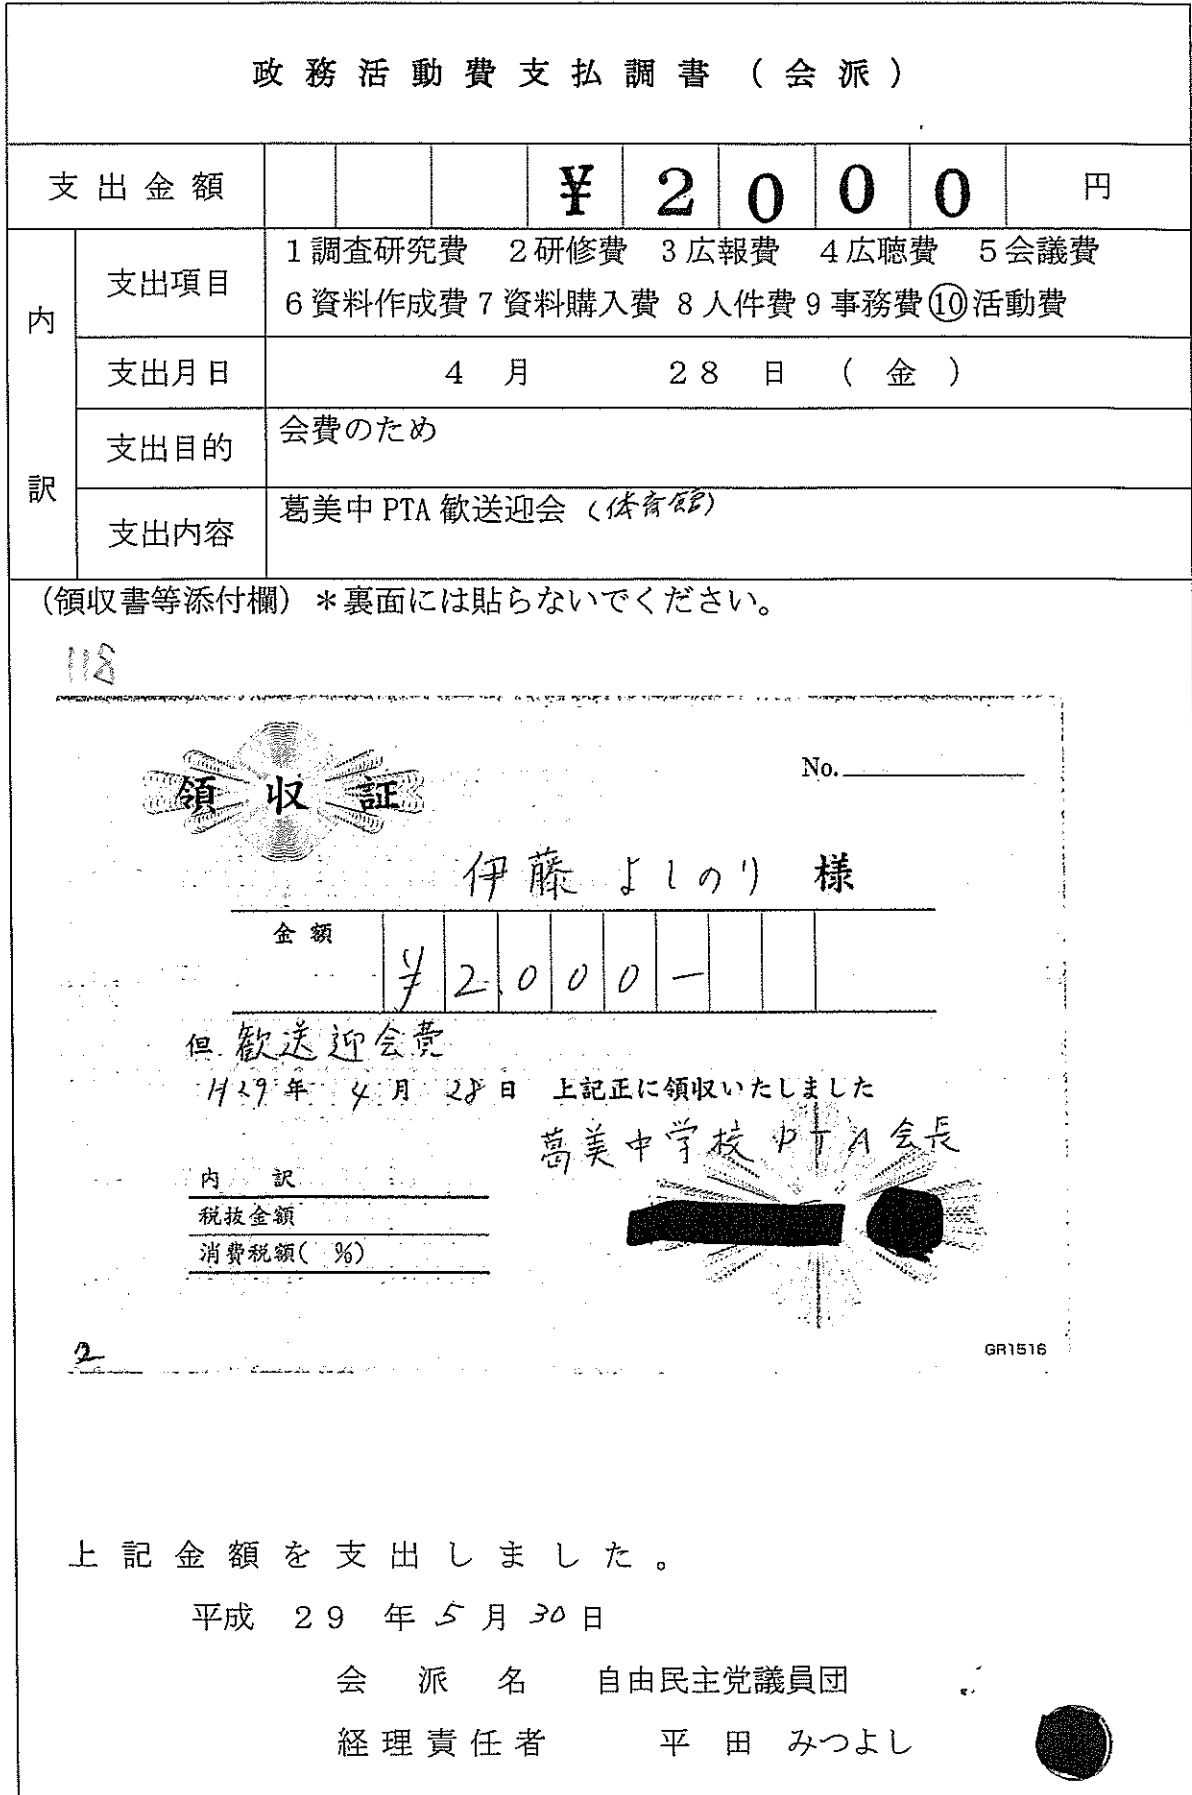 政務活動費支払調書（会派）
支出金額 ¥2000 円
内訳
支出項目 1調査研究費 2研修費 3広報費 4広聴費 5会議費
6資料作成費 7資料購入費 8人件費 9事務費 ⑩活動費
支出月日 4月 28日 （金）
支出目的 会費のため
支出内容 葛美中PTA歓送迎会（体育館）
（領収書等添付欄）＊裏面には貼らないでください。
118
領収証
No.
伊藤 よしのり 様
金額 ¥2,000−
但 歓送迎会費
H29年 4月 28日 上記正に領収いたしました
葛美中学校PTA会長
内訳
税抜金額
消費税額( %)
2
GR1516
上記金額を支出しました。
平成 29 年 5月 30日
会派名 自由民主党議員団
経理責任者 平田 みつよし